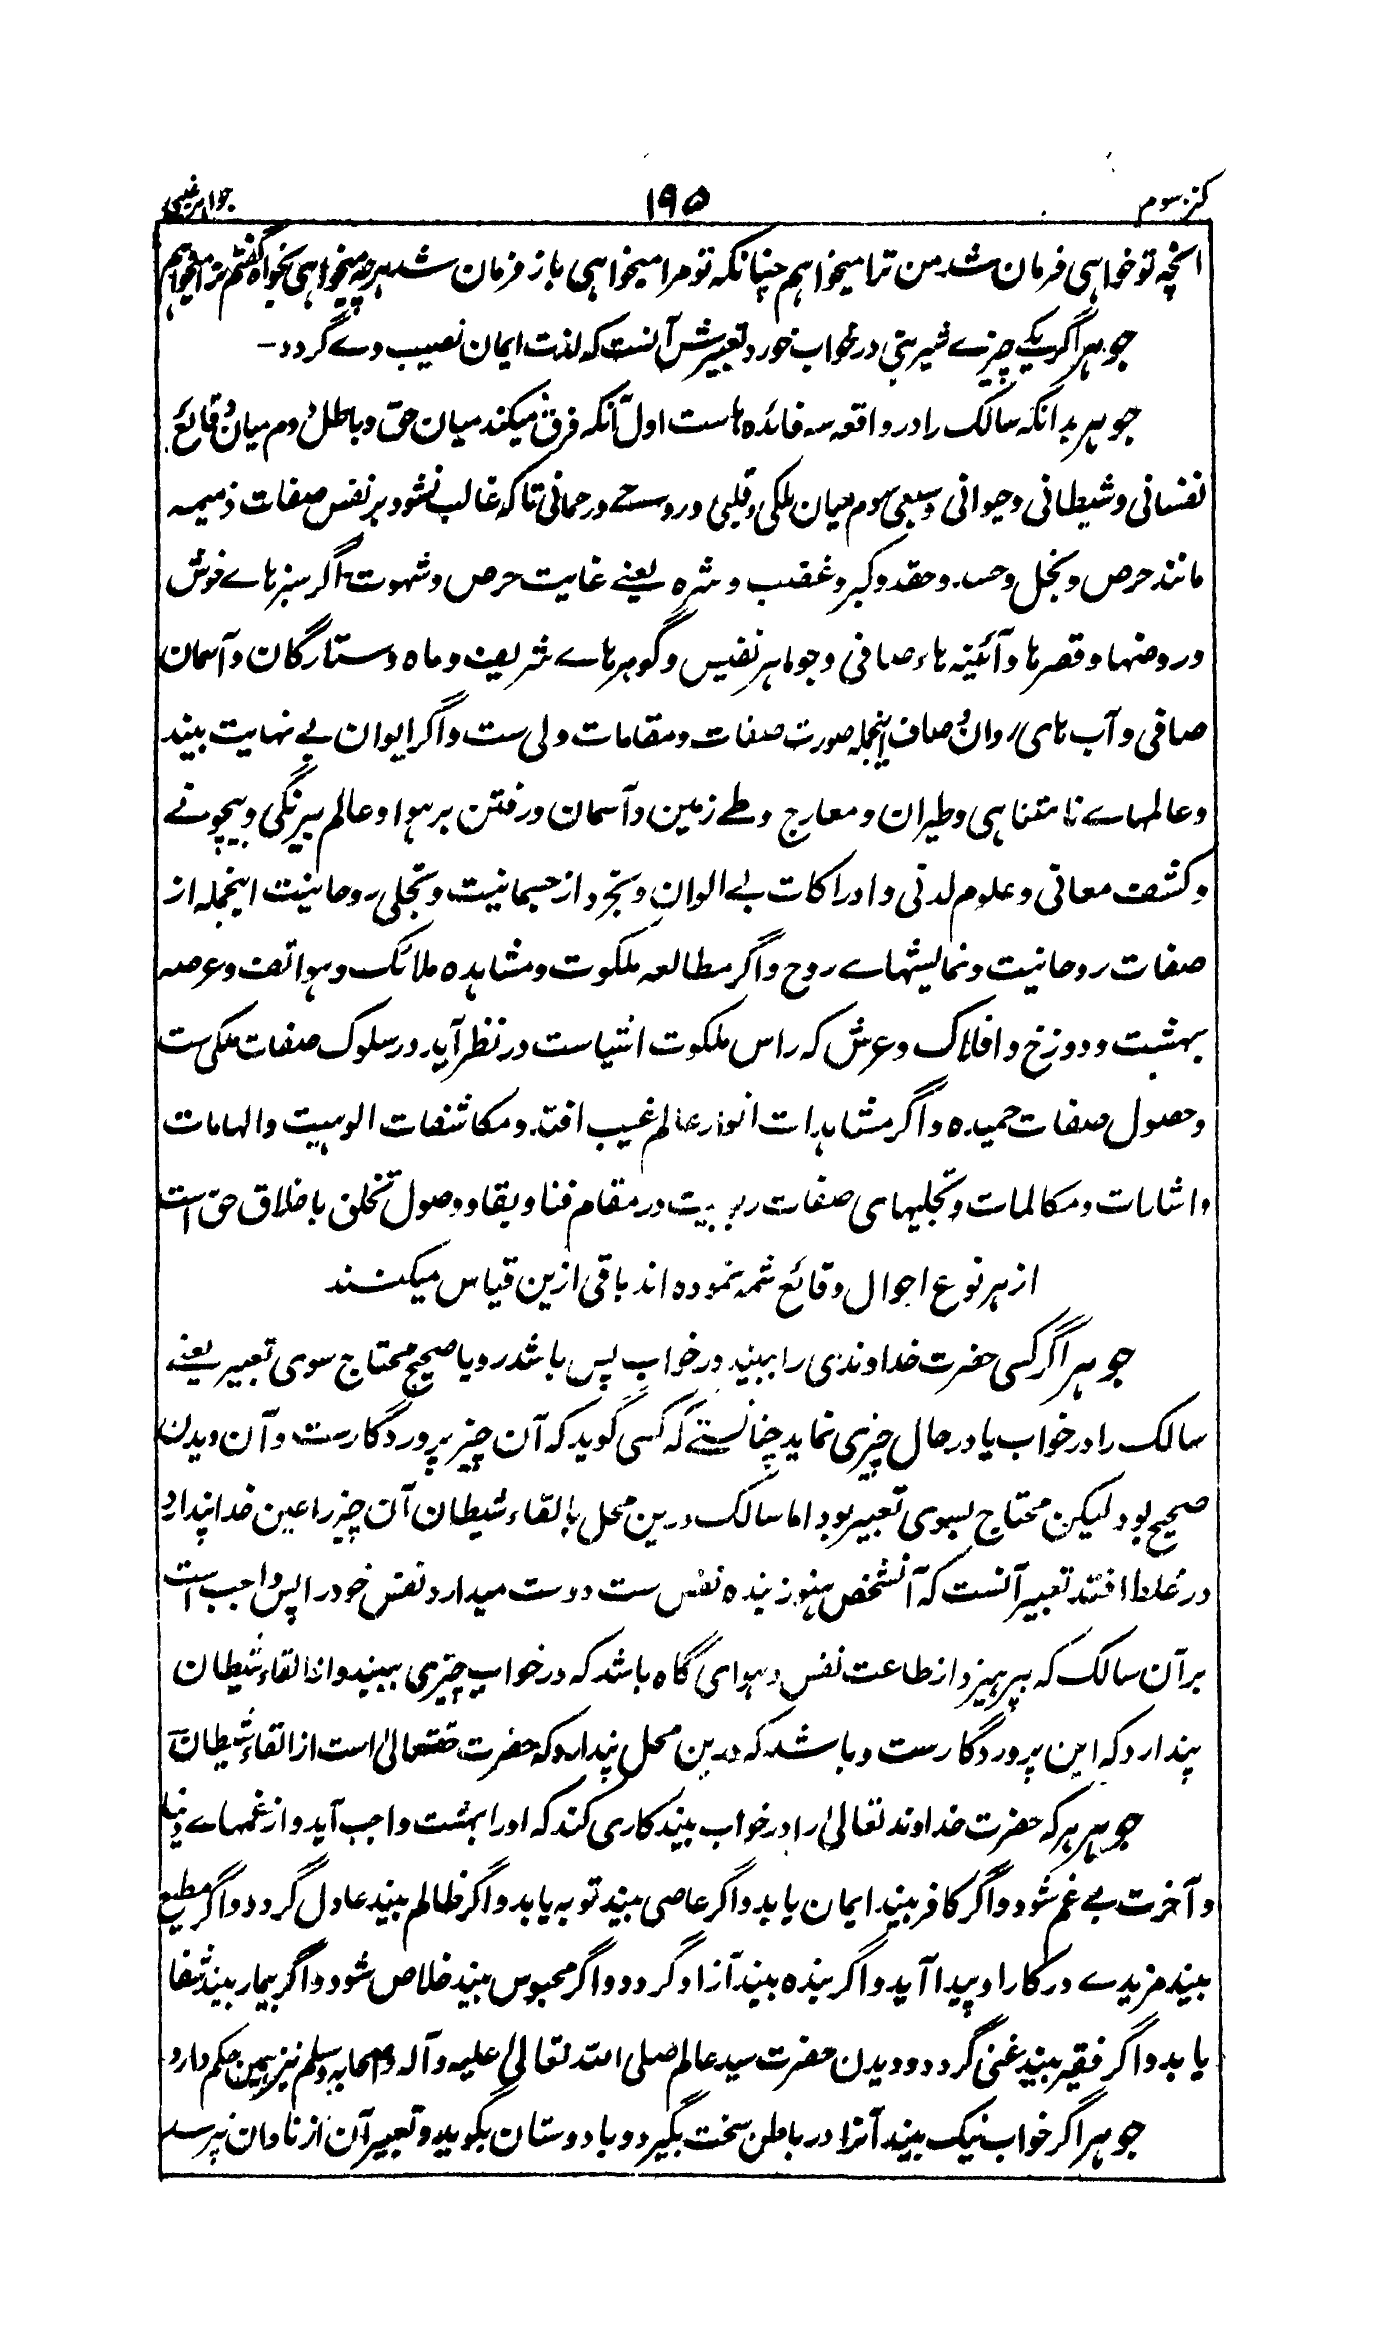 کنز سوم ۱۹۵ جواهر غیبی
انچه تو خواهی فرمان شد من ترا میخواهم چنانکه تو مرا میخواهی باز فرمان شد هرچه میخواهی بخواه گفتم ترا میخواهم
جوهر اگر یکے چیزے شیرینی در خواب خورد تعبیرش آنست که لذت ایمان نصیب وے گردد –
جوهر بدانکه سالک را در واقعه سه فائده هاست اول آنکه فرق میکند میان حق و باطل دوم میان وقائع
نفسانی و شیطانی و حیوانی و سبعی سوم میان ملکی و قلبی و روحے و رحمانی تا که غالب نشود بر نفس صفات ذمیمه
مانند حرص و بخل و حسد و حقد و کبر و غضب و شره یعنے غایت حرص و شهوت اگر سبزهاے خوش
و روضها و قصرها و آئینه هاء صافی و جواهر نفیس و گوهرهاے شریف و ماه و ستارگان و آسمان
صافی و آب های روان و صاف اینجمله صورت صفات و مقامات ولی ست و اگر ایوان بے نهایت بیند
و عالمهاے نامتناهی و طیران و معارج و طے زمین و آسمان و رفتن بر هوا و عالم بیرنگی و بیچونے
و کشف معانی و علوم لدنی و ادراکات بے الوان و تجرد از جسمانیت و تجلی روحانیت اینجمله از
صفات روحانیت و نمایشهاے روح و اگر مطالعه ملکوت و مشاهده ملائک و هواتف و عرصه
بهشت و دوزخ و افلاک و عرش که راس ملکوت اشیاست در نظر آید در سلوک صفات ملکی ست
و حصول صفات حمیده و اگر مشاهدات انوار عالم غیب افتد و مکاشفات الوهیت و الهامات
و اشارات و مکالمات و تجلیهای صفات ربوبیت در مقام فنا و بقا و وصول تخلق باخلاق حق است
از هر نوع احوال وقائع شمه نموده اند باقی ازین قیاس میکنند
جوهر اگر کسی حضرت خداوندی را ببیند در خواب پس باشد رویا صحیح محتاج سوی تعبیر یعنے
سالک را در خواب یا در حال چیزی نماید چنانستے که کسی گوید که آن چیز پروردگارست و آن دیدن
صحیح بود لیکن محتاج بسوی تعبیر بود اما سالک درین محل بالقاء شیطان آن چیز را عین خدا پندارد
در غلط افتد تعبیر آنست که آنشخص هنوز بنده نفس ست دوست میدارد نفس خود را پس واجب است
بر آن سالک که بپرهیزد از طاعت نفس و هوای گاه باشد که در خواب چیزی ببیند و از القاء شیطان
پندارد که این پروردگارست و باشد که درین محل پندارد که حضرت حقتعالیٰ است از القاء شیطان
جوهر هر که حضرت خداوند تعالیٰ را در خواب بیند کاری کند که اورا بهشت واجب آید و از غمهاے دنیا
و آخرت بے غم شود و اگر کافر بیند ایمان یابد و اگر عاصی بیند توبه یابد و اگر ظالم بیند عادل گردد و اگر مطیع
بیند مزیدے در کار او پیدا آید و اگر بنده بیند آزاد گردد و اگر محبوس بیند خلاص شود و اگر بیمار بیند شفا
یابد و اگر فقیر بیند غنی گردد و دیدن حضرت سید عالم صلی الله تعالیٰ علیه و آله و اصحابه وسلم نیز همین حکم دارد
جوهر اگر خواب نیک بیند آنرا در باطن سخت بگیرد و با دوستان بگوید و تعبیر آن از نادان نپرسد